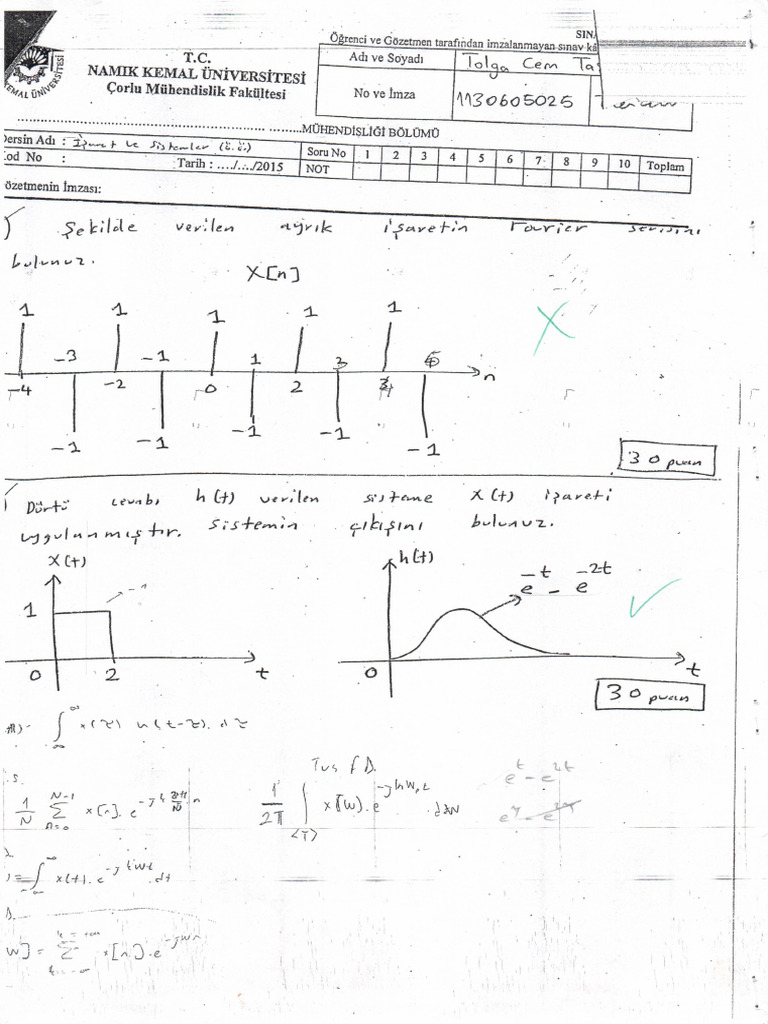 SINA
Öğrenci ve Gözetmen tarafından imzalanmayan sınav ka
T.C.
NAMIK KEMAL ÜNİVERSİTESİ
Çorlu Mühendislik Fakültesi
Adı ve Soyadı Tolga Cem Ta
No ve İmza 1130605025
MÜHENDİSLİĞİ BÖLÜMÜ
Dersin Adı : İşaret ve Sistemler (İ.Ö.)
Kod No : Tarih : ..../..../2015
Soru No 1 2 3 4 5 6 7 8 9 10 Toplam
NOT
Gözetmenin İmzası:
) Şekilde verilen ayrık işaretin Fourier serisini
bulunuz.
X[n]
1 1 1 1 1
-3 -1 1 3 5
-4 -2 0 2 4 n
-1 -1 -1 -1 -1
30 puan
) Dürtü cevabı h(t) verilen sisteme x(t) işareti
uygulanmıştır. Sistemin çıkışını bulunuz.
x(t) h(t)
e^-t - e^-2t
1
0 2 t 0 t
30 puan
∫ x(τ) h(t-τ). dτ
1/N Σ x[n]. e
N-1
n=0
1/2π ∫ x(w). e
e^t - e^2t
∫ x(t). e .dt
w] = Σ x[n]. e^-jwn